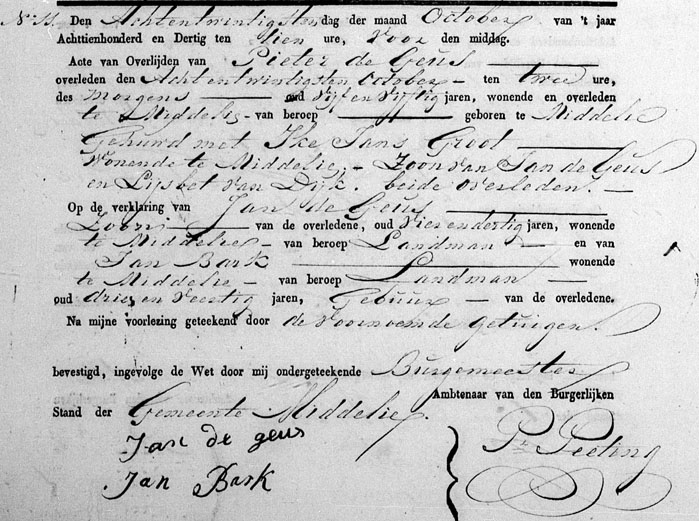 No. 11. Den Achtentwintigsten dag der maand October van 't jaar
Achttienhonderd en Dertig ten tien ure, voor den middag.
Acte van Overlijden van Pieter de Geus
overleden den Achtentwintigsten October ten twee ure,
des morgens oud Vijf en Vijftig jaren, wonende en overleden
te Middelie van beroep geboren te Middelie
Gehuwd met Jans Groot
Wonende te Middelie, Zoon van Jan de Geus
en Lijsbet van Dijk. beide overleden.
Op de verklaring van Jan de Geus
Zoon van de overledene, oud Vier en dertig jaren, wonende
te Middelie van beroep Landman en van
Jan Bark wonende
te Middelie van beroep Landman
oud drie en Veertig jaren, Gebuur van de overledene.
Na mijne voorlezing geteekend door de voornoemde getuigen.
bevestigd, ingevolge de Wet door mij ondergeteekende Burgemeester
Ambtenaar van den Burgerlijken
Stand der Gemeente Middelie.
Jan de geus
Jan Bark
Pr. Peeting